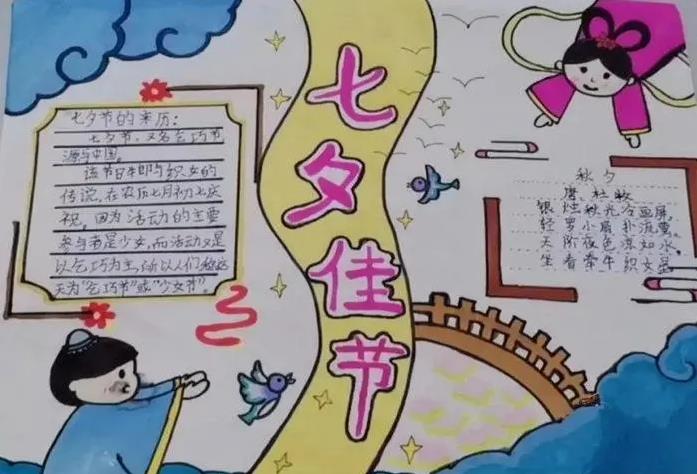 七夕佳节
七夕节的来历:
七夕节,又名乞巧节
源与中国。
该节日牛郎与织女的
传说,在农历七月初七庆
祝,因为活动的主要
参与者是少女,而活动又是
以乞巧为主,所以人们称这
天为“乞巧节”或“少女节”。
秋夕
唐 杜牧
银烛秋光冷画屏,
轻罗小扇扑流萤。
天阶夜色凉如水,
坐看牵牛织女星